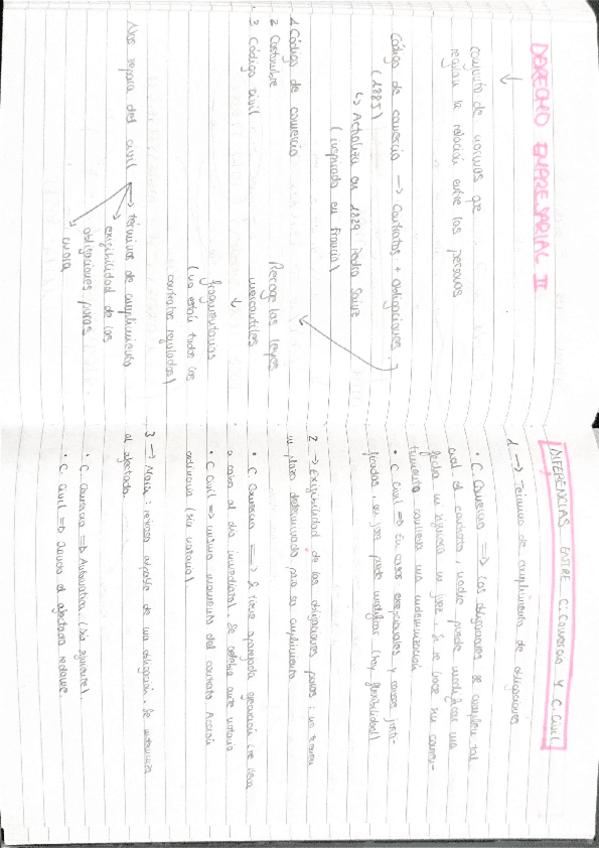 DERECHO EMPRESARIAL II
conjunto de normas que
regulan la relación entre las personas
Código de comercio → Contratos + obligaciones
(1885)
↳ Actualiza en 1829 Pedro Sainz
(inspirado en Francia)
1 Código de comercio
2 Costumbre
3 Código civil
Recoge las leyes
mercantiles
fragmentarias
(no están todos los
contratos regulados)
Nos separa del civil → términos de cumplimiento
exigibilidad de las
obligaciones puras
mora
DIFERENCIAS ENTRE C. Comercio Y C. Civil
1 → Términos de cumplimiento de obligaciones
• C Comercio ⇒ Las obligaciones se cumplen tal
cual el contrato, nadie puede modificar una
fecha ni siquiera un juez. Si se hace su
conlleva una indemnización
• C Civil ⇒ En casos excepcionales y causas justi-
ficadas, un juez puede modificar (hay flexibilidad)
2 → Exigibilidad de las obligaciones puras: no tienen
un plazo determinado para su cumplimiento
• C Comercio ⇒ Si tiene aparejada ejecución (se lleva
a cabo al día inmediato). Se celebra ante notario
• C Civil ⇒ mismo momento del contrato. Acción
ordinaria (sin notario).
3 → Mora: retraso culpable de una obligación. Se indemniza
al afectado.
• C Comercio ⇒ Automática. (Día siguiente).
• C Civil ⇒ Cuando el afectado reclame.